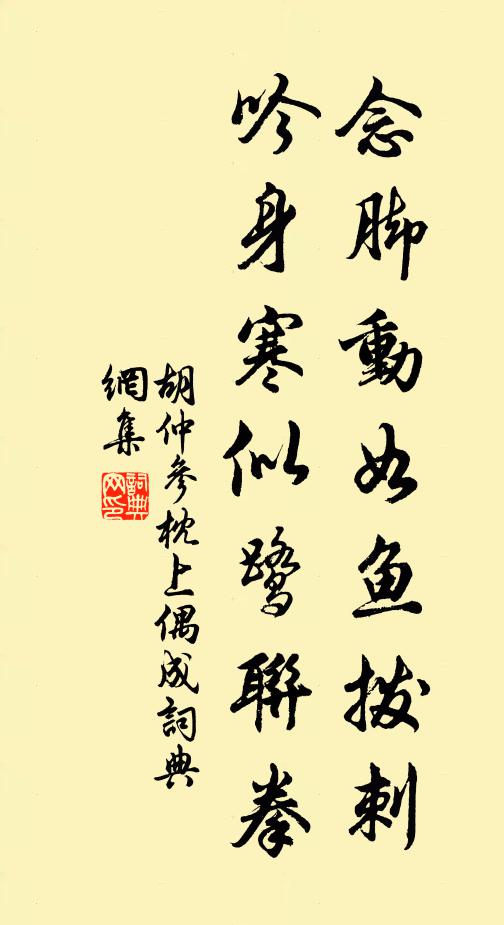 念脚動如鱼拨刺
吟身寒似鹭聯拳
胡仲參枕上偶成詞典
網集
詞典网印